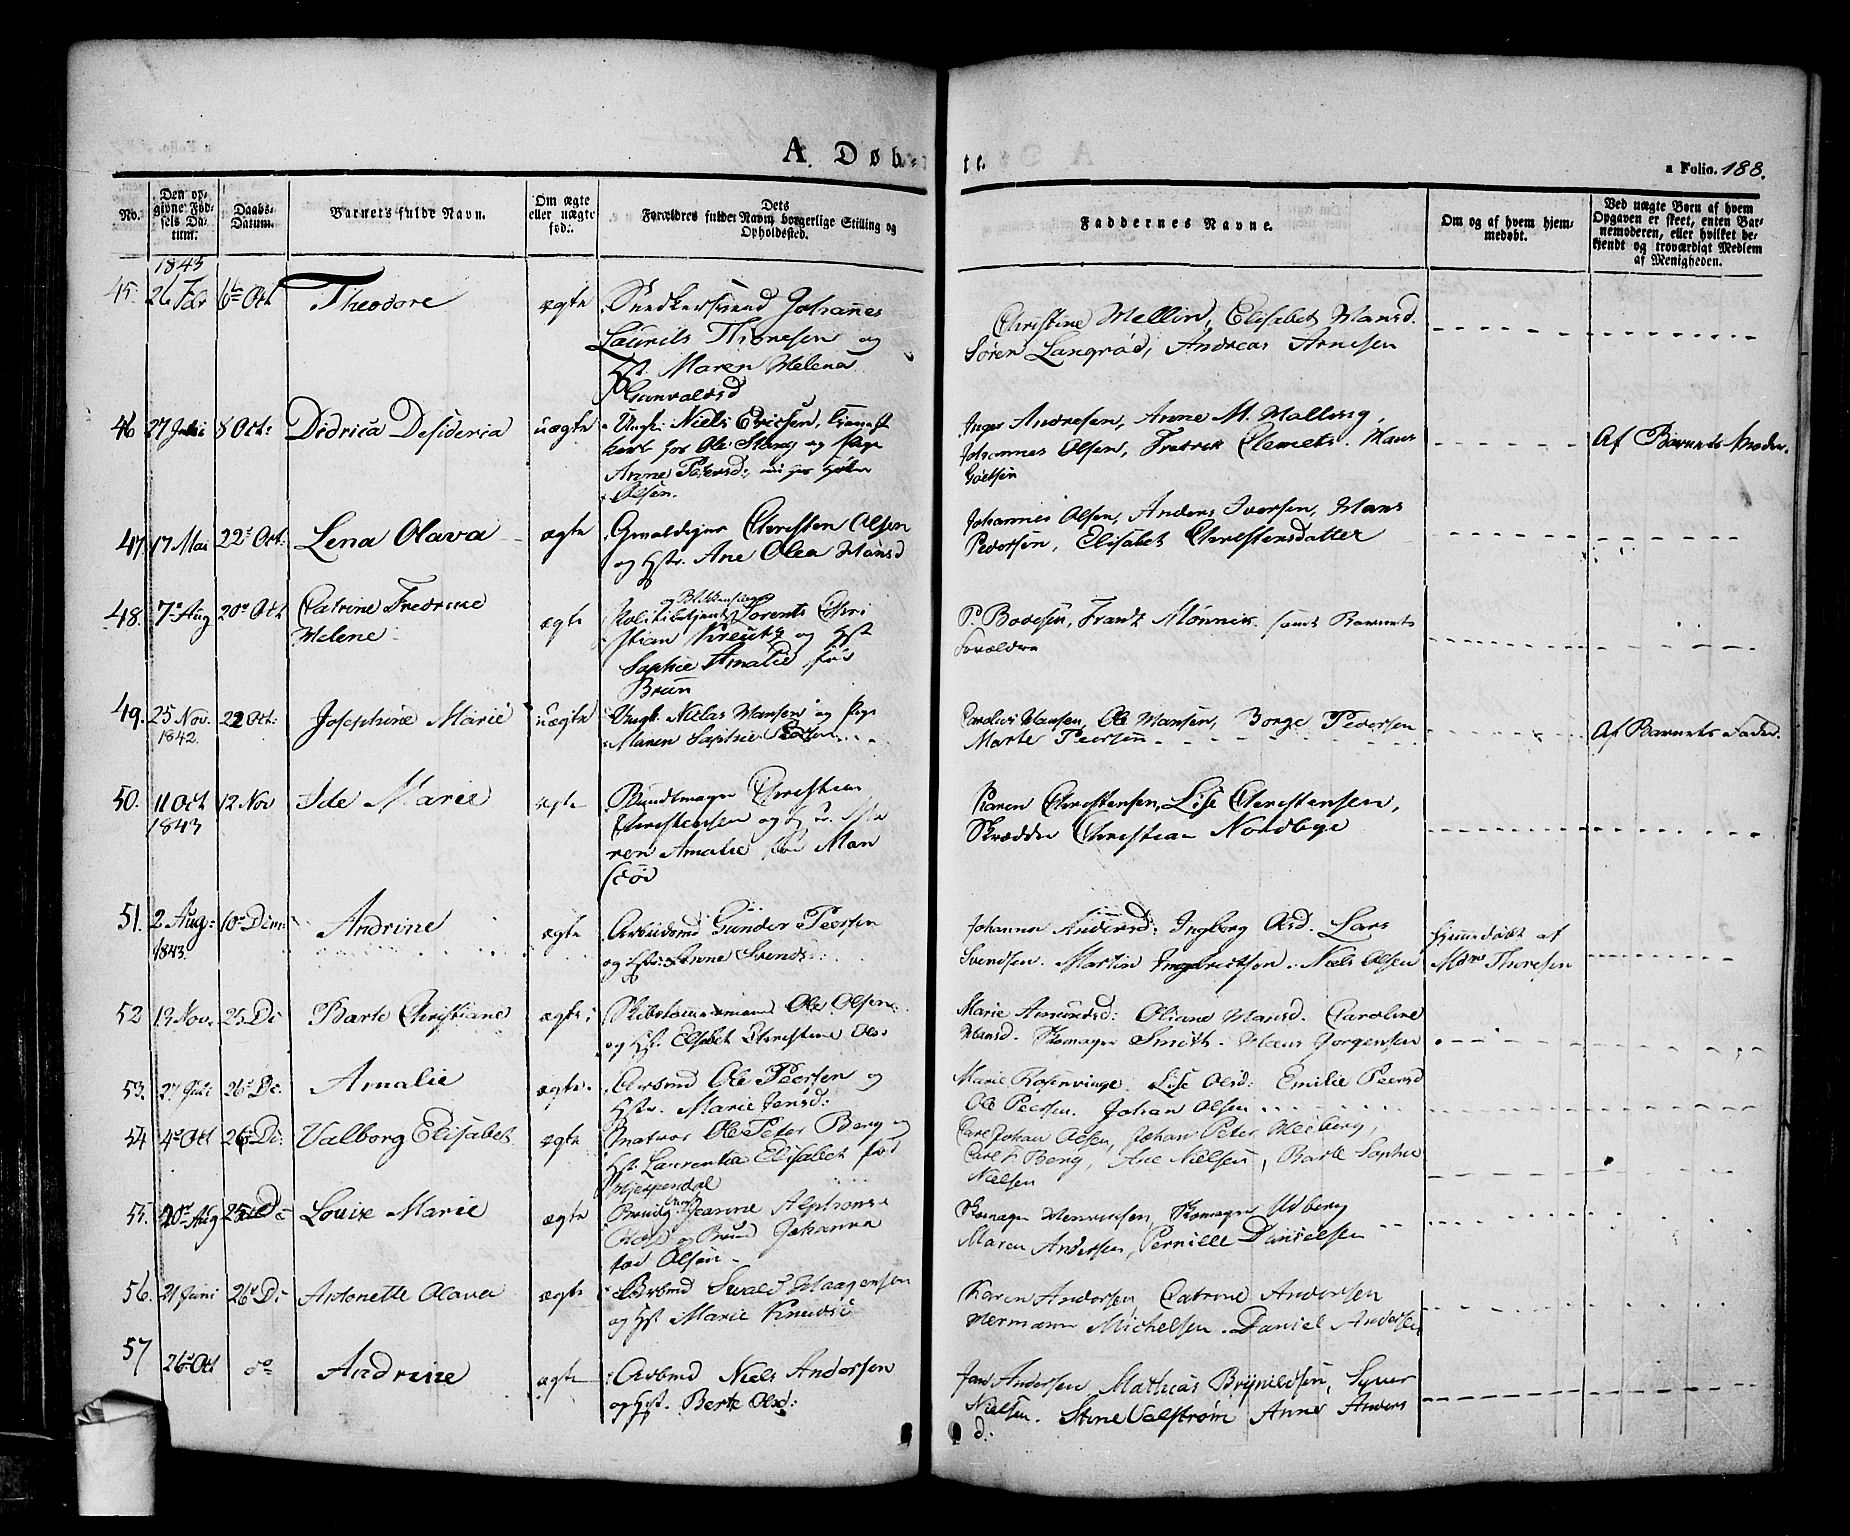 A. Døb-
te.
a Folio. 188.
No.
Den opgivne Fødsels Datum.
Daabs-Datum.
Barnets fulde Navn.
Om ægte eller uægte fød.
Dets Forældres fulde Navn, borgerlige Stilling og Opholdssted.
Faddernes Navne.
Om og af hvem hjemmedøbt.
Ved uægte Børn af hvem Opgaven er skeet, enten Barnemoderen, eller hvilket bekjendt og troværdigt Medlem af Menigheden.
1843
45. 26 Febr 6te Oct Theodore ægte Snedkersvend Johannes
Laurits Thoresen og
Hst. Maren Helena
Gunvaldsd
Christine Mellin, Elisabet Hansd.
Søren Langrød, Andreas Arnesen
46 27 Juli 8 Oct: Didrica Desideria uægte Ungk: Niels Ericsen, tjeneste
karl hos Ole Steeg og Pige
Anne Pedersd:
Olsen.
Inger Andresen, Anne M. Malling,
Johannes Olsen, Fredrik Clemets. Hans
Af Barnets Moder.
47. 17 Mai 22 Oct: Lena Olava ægte Gaardeier Christen Olsen
og Hst. Ane Olea Hansd
Johannes Olsen, Anders Iversen, Hans
Pedersen, Elisabet Christensdatter
48. 7 Aug 20 Oct Catrine Fredrine
Helene
ægte og Blikkenslager
Politibetjent Lorents Chri
stian Kreutz og Hst
Sophie Amalie fød
Brun
P. Boyesen, Frantz Mønnik samt Barnets
Forældre
49. 25 Nov. 22 Oct: Josephine Marie uægte Ungk. Niclas Hansen og Pige
1842.
Maren Sophie Pedersen
Carolus Hansen, Ole Hansen, Borge Pedersen
Marte Peersen
Af Barnets Fader.
50. 11 Oct 12 Nov Ide Marie ægte Bundtmager Christian
1843
Christensen og Hst. Ma
ren Amalie fød Man
Karen Christensen, Lise Christensen,
Skrædder Christian Nordbye
51. 2 Aug: 10 Dem: Andrine ægte Arbeidsmd Gunder Peersen
1843.
og Hst: Anne Svendsd:
Johanne Andersd: Ingborg Olsd. Lars
Svendsen. Martin Ingebrictson. Niels Olsen
Hjemmedøbt af
Mdm Thoresen
52 13 Nov. 25 De Barte Christiane ægte Skibstømmermand Ole Olsen
og Hst. Elsebet Christine Olsd
Marie Amundsd: Oliane Hansd. Caroline
Hansd. Skomager Smith. Hans Jørgensen
53. 27 Juli 26 De. Amalie ægte. Arbmd Ole Peersen og
Hstr. Marie Jensd:
Marie Rosenvinge. Lise Olsd: Emilie Peersd
Ole Peersen. Johan Olsen
54 4 Oct 26 De: Valborg Elisabet ægte Snatvor Ole Peter Berg og
Hst. Laurentia Elisabet fød
Hjespendal
Carl Johan Olsen, Johan Peter Heiberg,
Carl F. Berg, Ane Nielsen, Barte Sophie
Nielsen
55. 20 Aug 25 De Louise Marie ægte Jeanne Alphonse
og Brud Johanna
fød Olsen
Skomager Henriksen, Skomager Udberg
Maren Andersen, Pernille Danielsen
56. 21 Juni 26 De Antonette Olava ægte Arbmd Svale Haagensen
og Hst Marie Knudsd
Karen Andersen, Catrine Andersen
Hermann Michelsen. Daniel Andersen
57 26 Oct do Andrine ægte Arbmd Niels Andersen
og Hst. Berte Olsd:
Jan Andersen, Mathias Brynildsen, Syver
Nielsen. Stine Valstrøm Anne Anders
d: